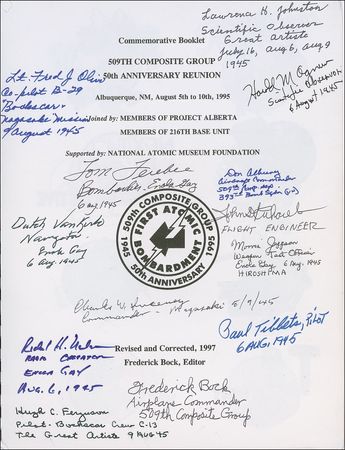 Lawrence H. Johnston
Scientific Observer
Great Artiste
July 16, Aug 6, Aug 9
1945
Commemorative Booklet
509TH COMPOSITE GROUP
50th ANNIVERSARY REUNION
Albuquerque, NM, August 5th to 10th, 1995
Lt. Fred J. Olivi
Co-pilot B-29
"Bockscar"
Nagasaki Mission
9 August 1945
Harold M. Agnew
Scientific Observer
6 August 1945
Joined by: MEMBERS OF PROJECT ALBERTA
MEMBERS OF 216TH BASE UNIT
Supported by: NATIONAL ATOMIC MUSEUM FOUNDATION
Tom Ferebee
Bombardier, Enola Gay
6 Aug 1945
Don Albury
Airplane Commander
509th Comp Grp
393rd Bomb Sqn
Dutch Van Kirk
Navigator
Enola Gay
6 Aug 1945
FLIGHT ENGINEER
Morris Jeppson
Weapon Test Officer
Enola Gay 6 Aug. 1945
HIROSHIMA
509TH COMPOSITE GROUP
FIRST ATOMIC
BOMBARDMENT
1945 50th ANNIVERSARY 1995
Charles W. Sweeney
Commander - Nagasaki 8/9/45
Paul Tibbets, Pilot
6 AUG, 1945
Revised and Corrected, 1997
Frederick Bock, Editor
Richd H. Nelson
Radio Operator
Enola Gay
Aug. 6, 1945
Frederick Bock
Airplane Commander
509th Composite Group
Hugh C. Ferguson
Pilot - Bockscar Crew C-13
The Great Artiste 9 Aug 45